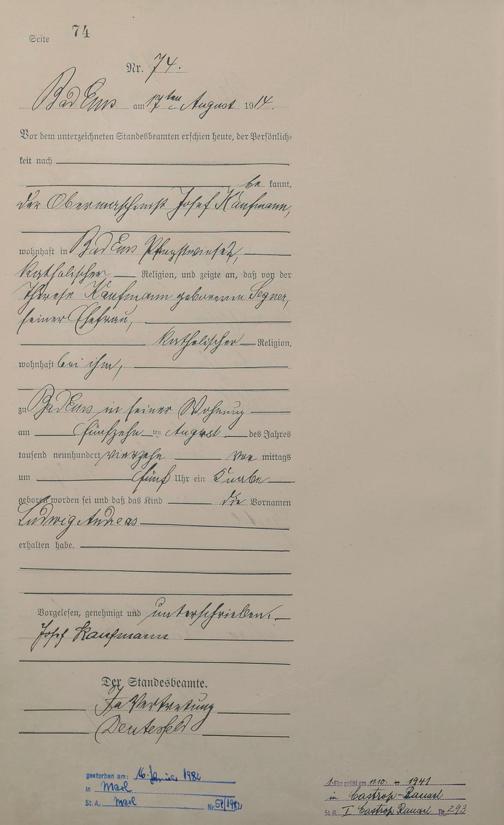 Seite 74
Nr. 74.
Bad Ems am 17ten August 1914.
Vor dem unterzeichneten Standesbeamten erschien heute, der Persönlich-
keit nach
be kannt,
der Obermaschinist Josef Kaufmann,
wohnhaft in Bad Ems
katholischer Religion, und zeigte an, daß von der
Therese Kaufmann geborenen Segner,
seiner Ehefrau,
katholischer Religion,
wohnhaft bei ihm,
zu Bad Ems in seiner Wohnung
am fünfzehn ten August des Jahres
tausend neunhundert vierzehn vor mittags
um fünf Uhr ein Knabe
geboren worden sei und daß das Kind die Vornamen
Ludwig Andreas
erhalten habe.
Vorgelesen, genehmigt und unterschrieben.
Josef Kaufmann
Der Standesbeamte.
In Vertretung
gestorben am: 1982
in Marl
St. A. Marl Nr.
1. Ehe am 11.10. 1941
in Castrop-Rauxel
St. A. I Castrop Rauxel Nr. 293